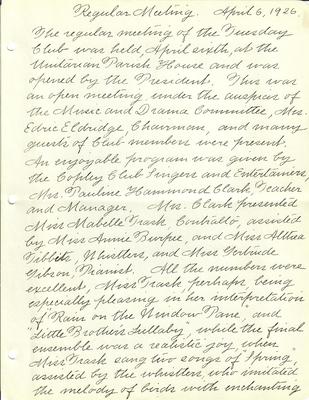 Regular Meeting. April 6, 1926.
The regular meeting of the Tuesday
Club was held April sixth, at the
Unitarian Parish House and was
opened by the President. This was
an open meeting under the auspices of
the Music and Drama Committee, Mrs.
Edric Eldridge, Chairman, and many
guests of Club members were present.
An enjoyable program was given by
the Copley Club Singers and Entertainers,
Mrs. Pauline Hammond Clark, Teacher
and Manager. Mrs. Clark presented
Miss Mabelle Trask, Contralto, assisted
by Miss Annie Burpee, and Miss Althea
Tibbets, Whistlers, and Miss Gertrude
Gibson, Pianist. All the numbers were
excellent, Miss Trask, perhaps, being
especially pleasing in her interpretation
of "Rain on the Window Pane, and
"Little Brother's Lullaby", while the final
ensemble was a realistic joy when
Miss Trask sang two songs of Spring,
assisted by the whistlers, who imitated
the melody of birds with enchanting